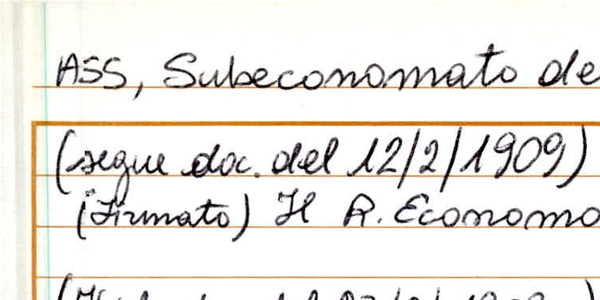 ASS, Subeconomato de
(segue doc. del 12/2/1909)
(Firmato) Il R. Economo